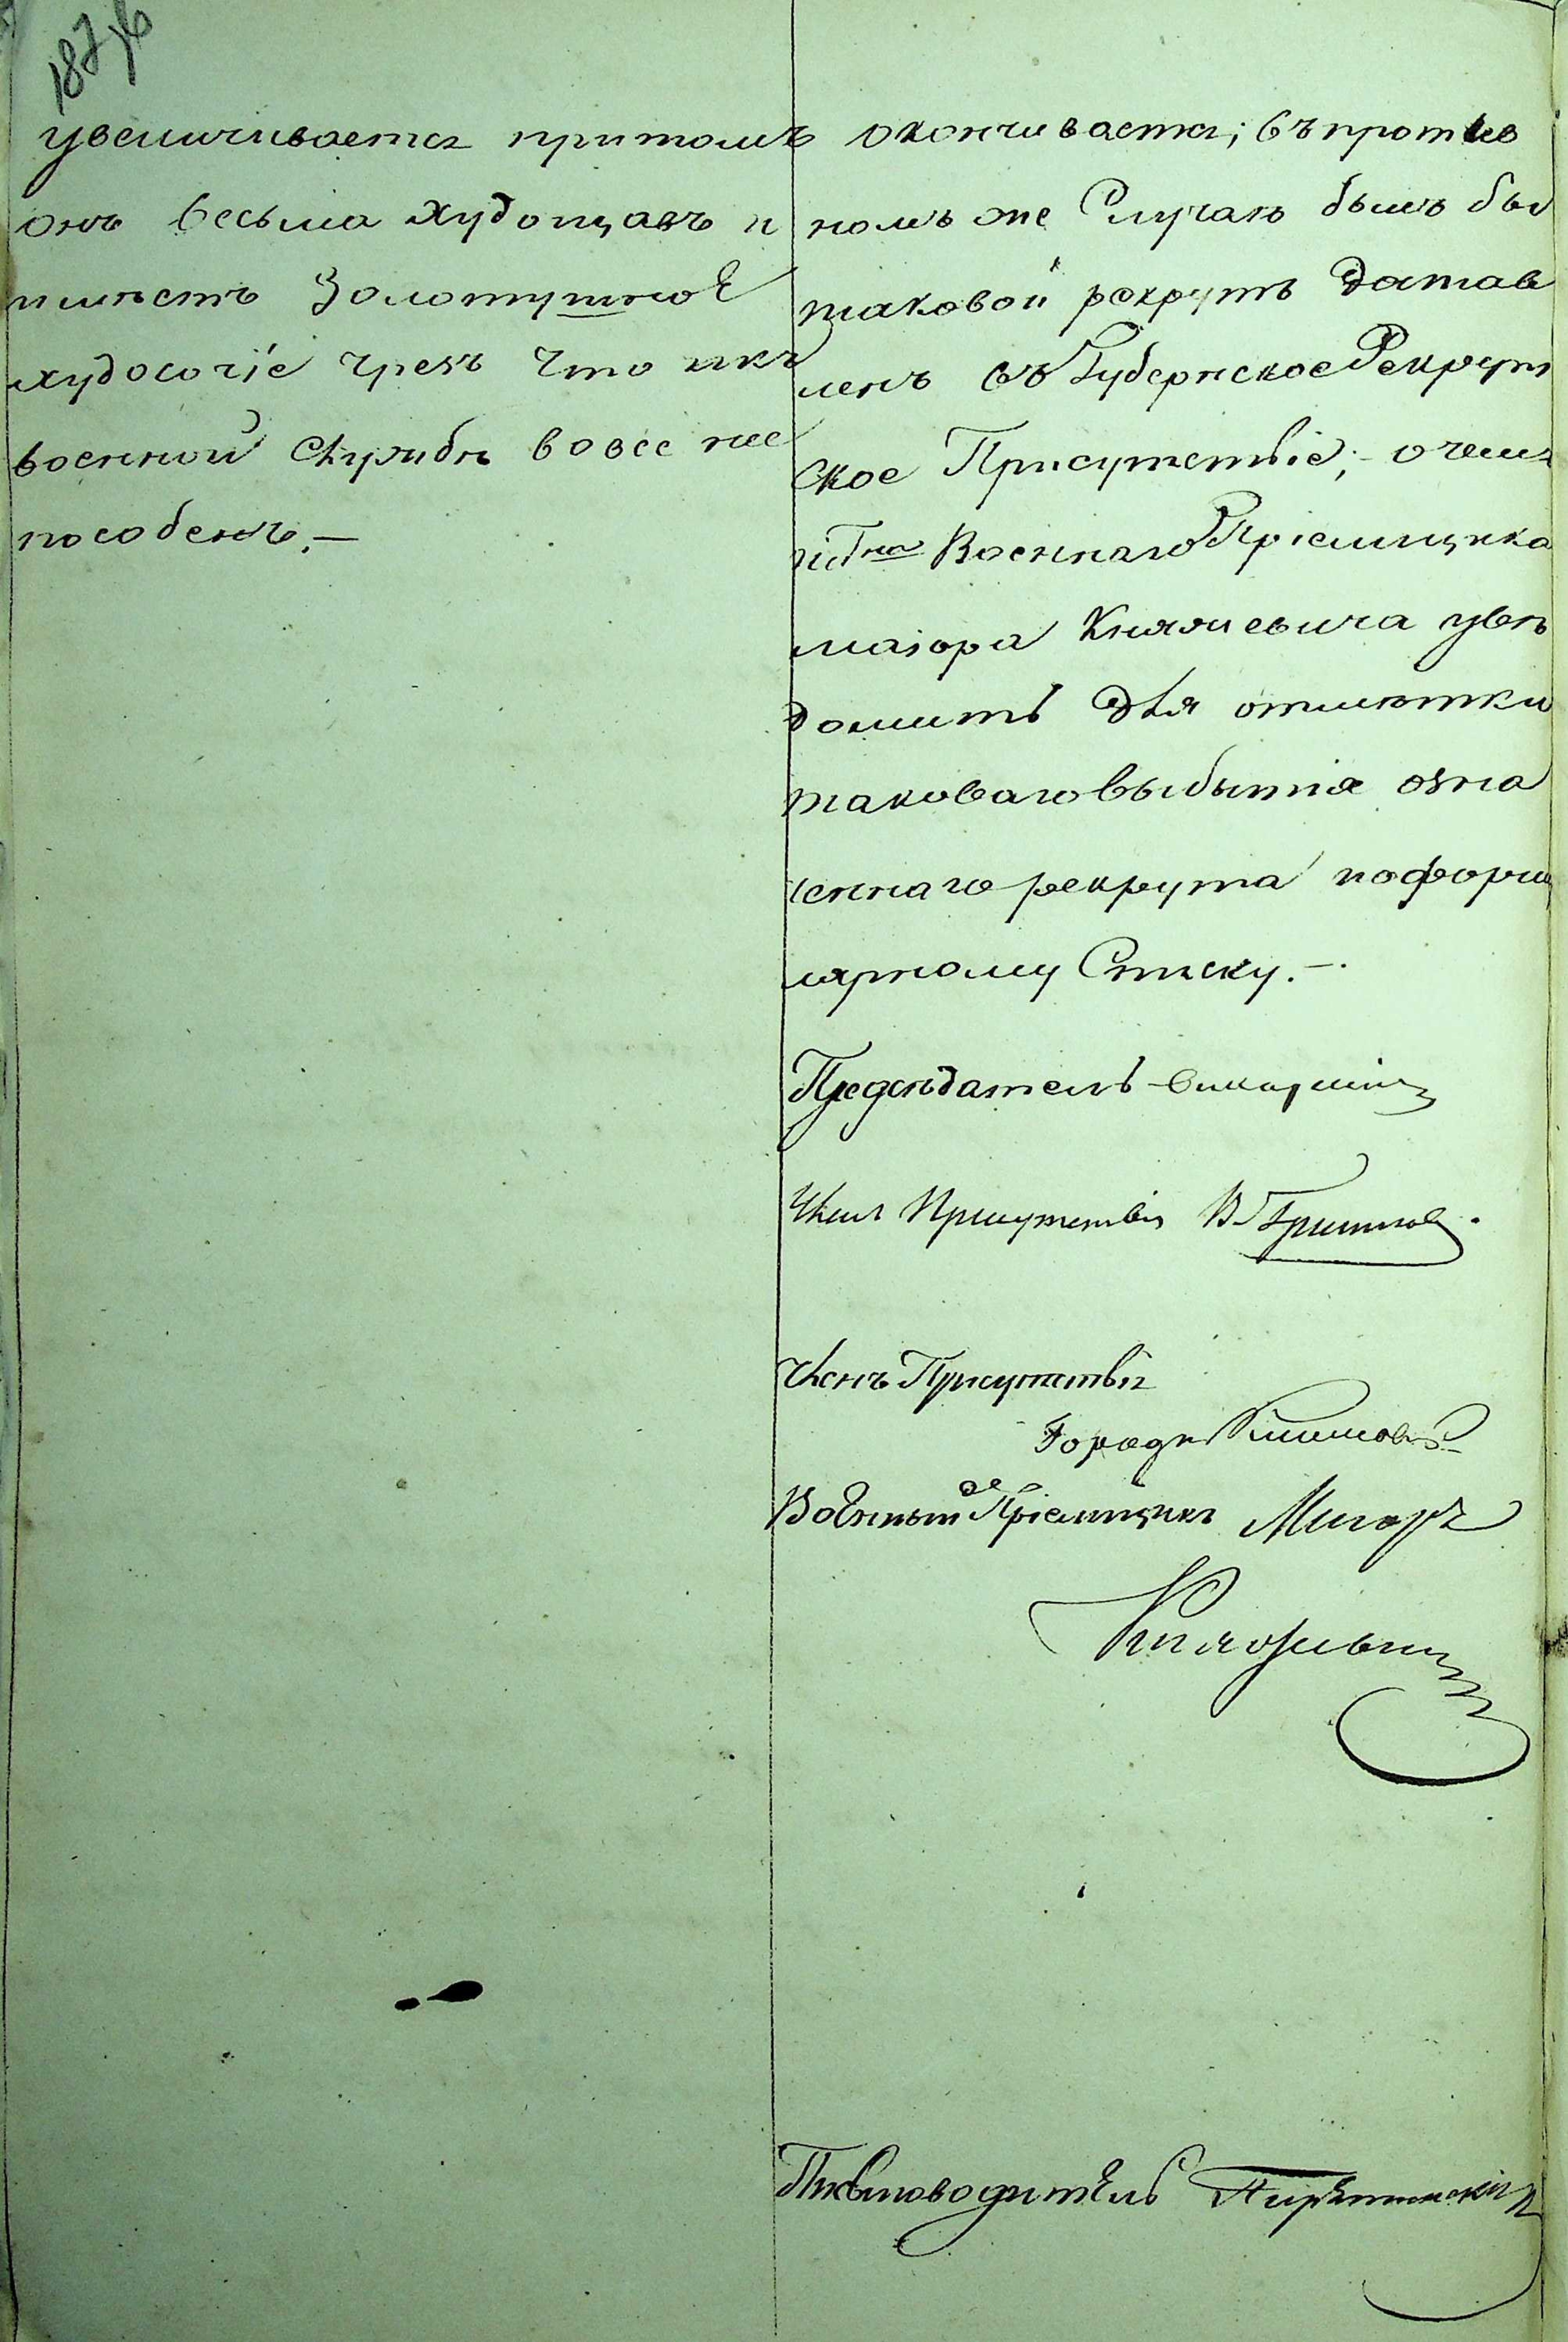 187 об
увеличивается притомъ
онъ весьма худощавъ и
имѣетъ Золотушное
худосочіе чрезъ что къ
военной Службѣ вовсе нес
пособенъ.—
окончивается; въ против
номъ же Случаѣ былъ бы
таковой рекрутъ Достав
ленъ въ Губернское Рекрут
ское Присутствіе; – о чемъ
и Гна Военнаго Пріемщика
маіора Княжевича увѣ
домить для отмѣтки
таковаго выбытія озна
ченнаго рекрута по форму
лярному Списку.–.
Предсѣдатель
Членъ Присутствія В. Гришков.
Членъ Присутствія
Городн
Военный Пріемщикъ Маіоръ
Княжевич
Письмоводитель